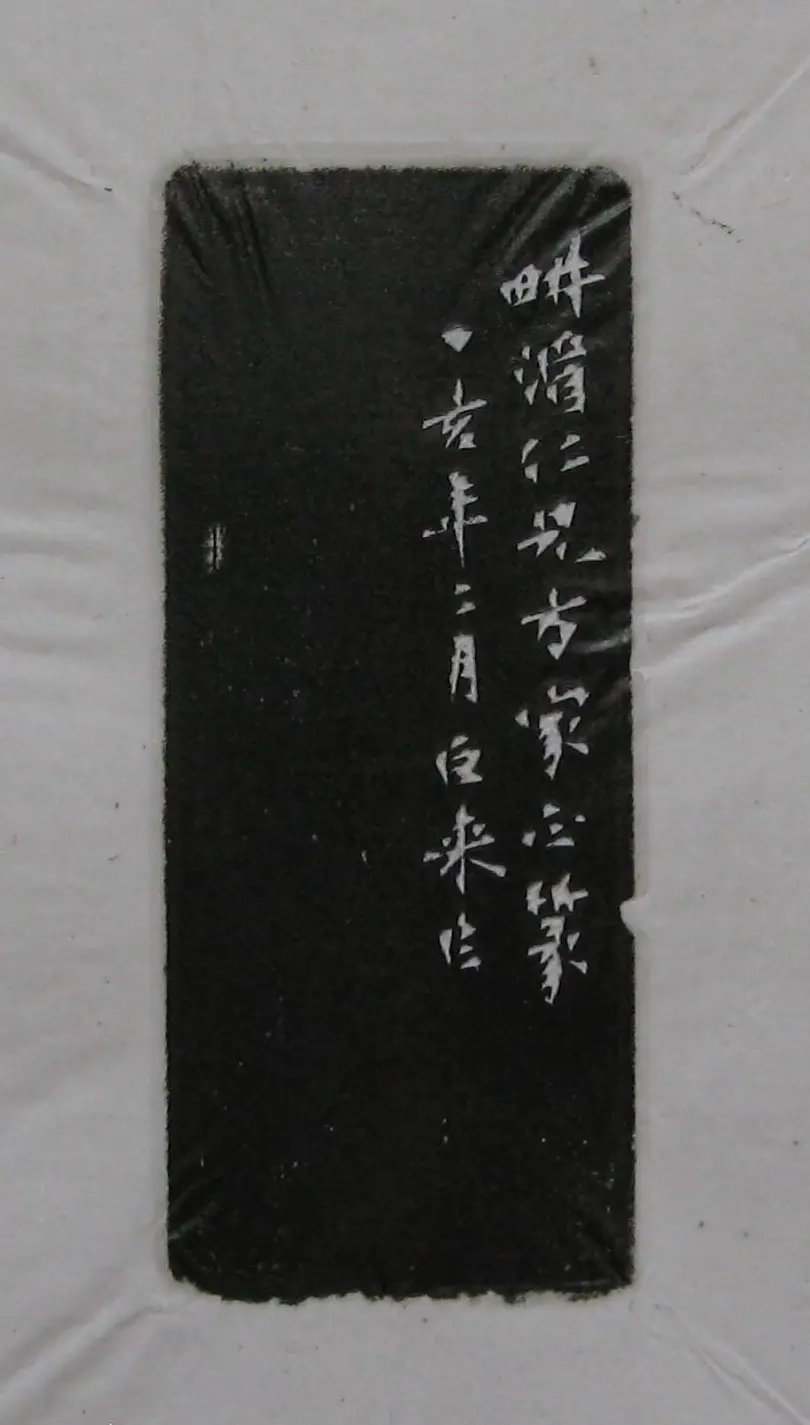 畊湄仁兄方家正篆
亥年二月白来作